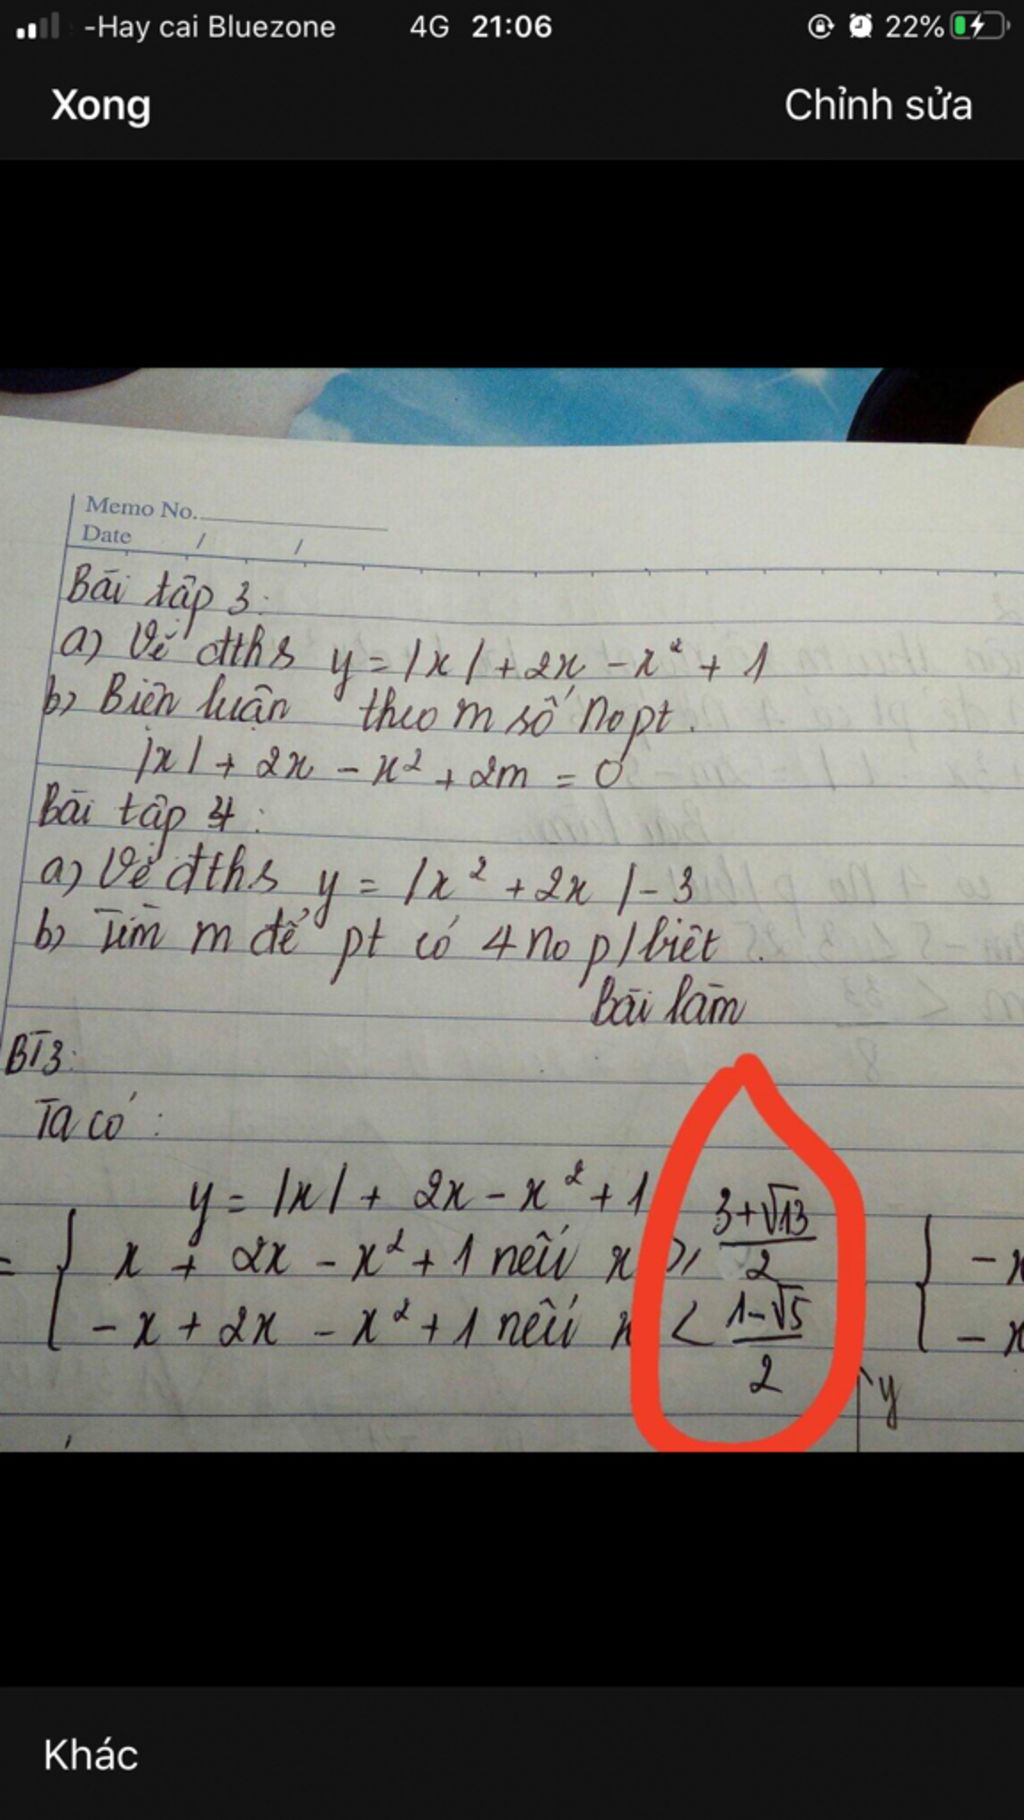 -Hay cai Bluezone 4G 21:06 22%
Xong Chỉnh sửa
Memo No.
Date / /
Bài tập 3:
a) Vẽ đths y = |x| + 2x - x² + 1
b) Biện luận theo m số nopt.
|x| + 2x - x² + 2m = 0
Bài tập 4:
a) Vẽ đths y = |x² + 2x| - 3
b) Tìm m để pt có 4 no p/biệt.
Bài làm
BT3:
Ta có:
y = |x| + 2x - x² + 1
= { x + 2x - x² + 1 nếu x ⩾ (3+√13)/2 { - x
- x + 2x - x² + 1 nếu x < (1-√5)/2 - x
y
Khác